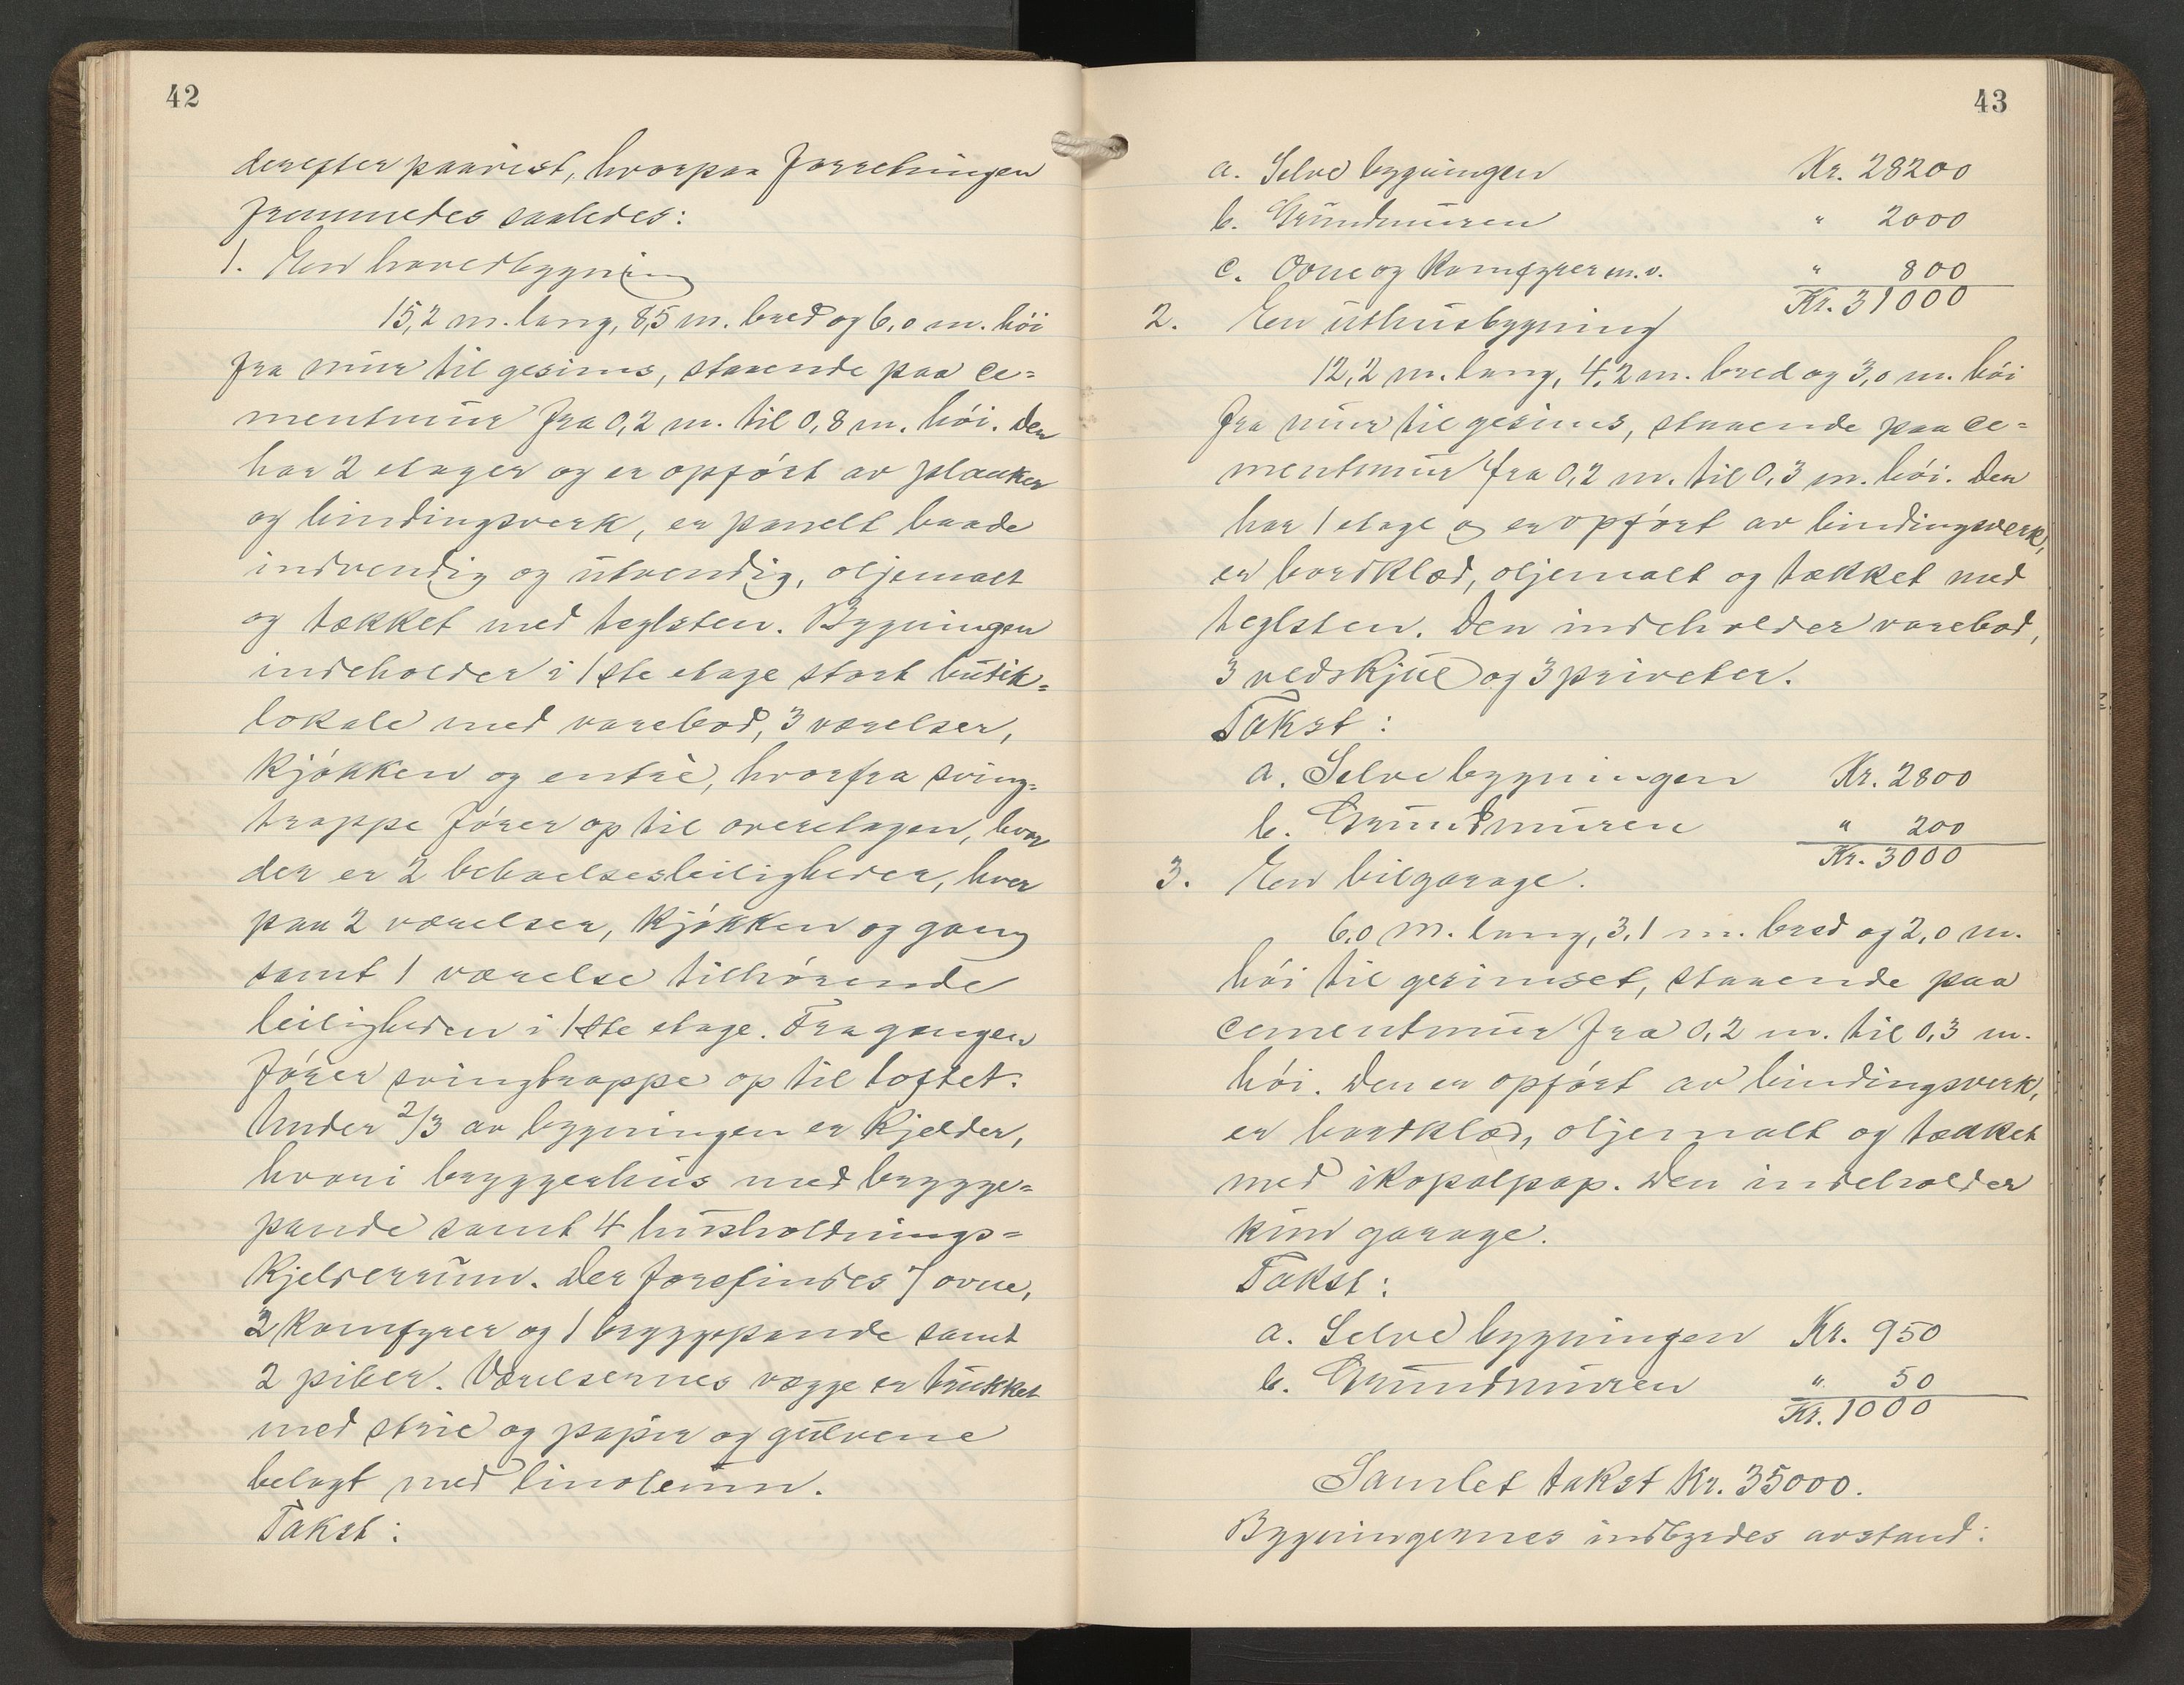 42
derefter paavist, hvorpaa forretningen
fremmedes saaledes:
1. En hovedbygning
15,2 m. lang, 8,5 m. bred og 6,0 m. höi
fra mur til gesims, staaende paa ce=
mentmur fra 0,2 m. til 0,8 m. höi. Den
har 2 etager og er opfört av planker
og bindingsverk, er panelt baade
indvendig og utvendig, oljemalt
og tækket med teglsten. Bygningen
indeholder i 1ste etage stort butik=
lokale med varebod, 3 værelser,
kjökken og entrè, hvorfra sving=
trappe förer op til overetagen, hvor
der er 2 beboelsesleiligheder, hver
paa 2 værelser, kjökken og gang
samt 1 værelse tilhörende
leiligheden i 1ste etage. Fra gangen
förer svingtrappe op til loftet.
Under 2/3 av bygningen er kjelder,
hvori bryggerhus med brygge=
pande samt 4 husholdnings=
kjelderrum. Der forefindes 7 ovne,
3 komfyrer og 1 bryggepande samt
2 piber. Værelsernes vægge er trukket
med strie og papir og gulvene
belagt med linoleum.
Takst:
43
a. Selve bygningen Kr. 28200
b. Grundmuren " 2000
c. Ovne og komfyrer m.v. " 800
Kr. 31000
2. En uthusbygning
12,2 m. lang, 4,2 m. bred og 3,0 m. höi
fra mur til gesims, staaende paa ce=
mentmur fra 0,2 m. til 0,3 m. höi. Den
har 1 etage og er opfört av bindingsverk,
er bordklæd, oljemalt og tækket med
teglsten. Den indeholder varebod,
3 vedskjul og 3 priveter.
Takst:
a. Selve bygningen Kr. 2800
b. Grundmuren " 200
Kr. 3000
3. En bilgarage.
6,0 m. lang, 3,1 m. bred og 2,0 m.
höi til gesimset, staaende paa
cementmur fra 0,2 m. til 0,3 m.
höi. Den er opfört av bindingsverk,
er bordklæd, oljemalt og tækket
med ikopalpap. Den indeholder
kun garage.
Takst:
a. Selve bygningen Kr. 950
b. Grundmuren " 50
Kr. 1000
Samlet takst Kr. 35000.
Bygningernes indbyrdes avstand: